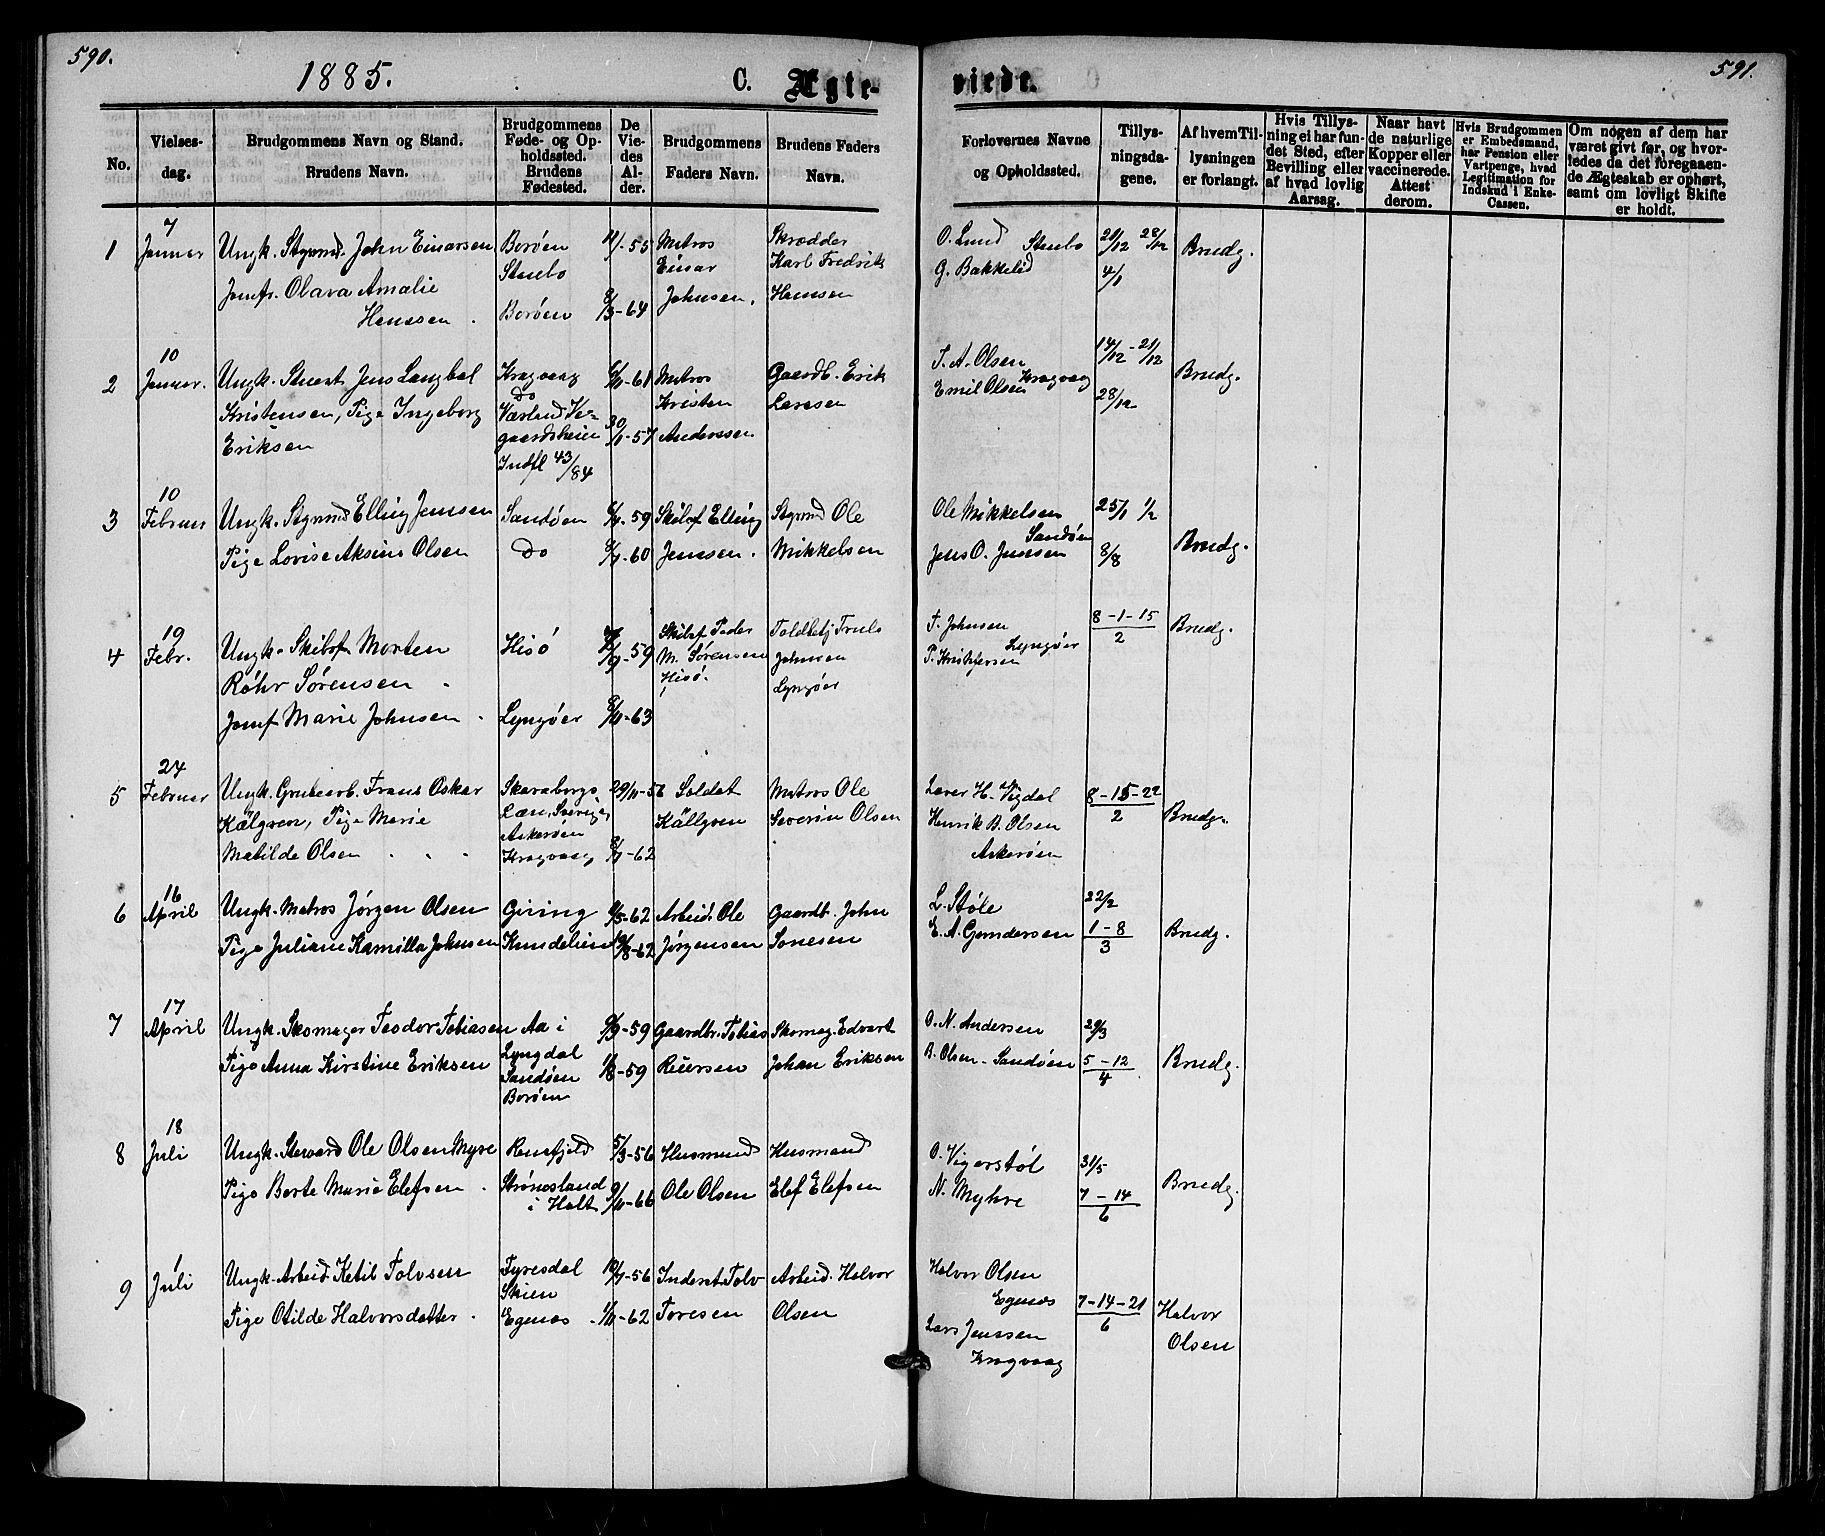 590.
1885.
C. Ægte-
viede.
591.
No.
Vielses-
dag.
Brudgommens Navn og Stand.
Brudens Navn.
Brudgommens
Føde- og Op-
holdssted.
Brudens
Fødested.
De
Vie-
des
Al-
der.
Brudgommens
Faders Navn.
Brudens Faders
Navn.
Forlovernes Navne
og Opholdssted.
Tillys-
ningsda-
gene.
Af hvem Til-
lysningen
er forlangt.
Hvis Tillys-
ning ei har fun-
det Sted, efter
Bevilling eller
af hvad lovlig
Aarsag.
Naar havt
de naturlige
Kopper eller
vaccinerede.
Attest
derom.
Hvis Brudgommen
er Embedsmand,
har Pension eller
Vartpenge, hvad
Legitimation for
Indskud i Enke-
Cassen.
Om nogen af dem har
været givt før, og hvor-
ledes da det foregaaen-
de Ægteskab er ophørt,
samt om lovligt Skifte
er holdt.
1
7
Januar
Ungk. Styrmd. John Einarsen
Jomfr. Olava Amalie
Hanssen
Borøen
Staubo
Borøen
4/1-55
8/3-64
Matros
Einar
Johnsen,
Skrædder
Karl Fredrik
Hanssen
O. Lund
Staubo
G. Bakkelid
21/12 28/12
4/1
Brudg.
2
10
Januar.
Ungk. Stuert Jens Langbal
Kristensen, Pige Ingeborg
Eriksen
Kragvaag
do
Værland Ve-
gaardsheien
Indfl 43/84
6/11-61
30/1-57
Matros
Kristen
Anderssen
Gaardb. Erik
Larssen
T. A. Olsen
Kragvaag
Emil Olsen
14/12-21/12
28/12
Brudg.
3
10
Februar
Ungk. Styrmd Elling Jenssen
Pige Lovise Aksine Olsen
Sandøen
do
-59
-60
Skibsf Elling
Jenssen.
Styrmd Ole
Mikkelsen
Ole Mikkelsen
Sandøen
Jens O. Jenssen
25/1 1/2
8/8
Brudg.
4
19
Febr.
Ungk. Skibsf Morten
Röhr Sørensen
Jomf Marie Johnsen
Hisö
Lyngøer
-59
8/11-63
Skibsf Peder
M. Sørensen
Hisö.
Toldbetj Truls
Johnsen
Lyngøer
T. Johnsen
Lyngøer
P. Kristofersen
8-1-15
2
Brudg.
5
24
Februar
Ungk. Grubearb. Frans Oskar
Kälgren, Pige Marie
Matilde Olsen
Skaraborgs
Læn, Sverige,
Askerøen
Kragvaag
29/11-56
-62
Soldat
Källgren
Matros Ole
Severin Olsen
Laver H. Vigdal
Henrik B. Olsen
Askerøen
8-15-22
2
Brudg.
6
16
April
Ungk. Matros Jørgen Olsen
Pige Juliane Kamilla Johnsen
Giving
Knudelien
6/5-62
/8-62
Arbeid. Ole
Jørgensen
Gaardb. John
Sonesen
L. Støle
E. A. Gundersen
22/2
1-8
3
Brudg.
7
17
April
Ungk. Skomager Teodor Tobiasen
Pige Anna Kirstine Eriksen
Aa i
Lyngdal
Sandøen
Borøen
6/9-59
1/8-59
Gaardbr. Tobias
Reiersen
Skomag. Edvart
Johan Eriksen
O. N. Andersen
B. Olsen - Sandøen
29/3
5-12
4
Brudg.
8
18
Juli
Ungk. Steward Ole Olsen Myre
Pige Berte Marie Elefsen
Renefjeld
Strønesland
i Holt
5/3-56
9/11-66
Husmand
Ole Olsen
Husmand
Elef Elefsen
O. Vigerstöl
N. Myhre
31/5
7-14
6
Brudg.
9
1
Juli
Ungk. Arbeid. Ketil Tolvsen
Pige Otilde Halvorsdatter
Fyresdal
Skien
Egenæs
-56
1/11-62
Inderst Tolv
Toresen
Arbeid. Halvor
Olsen
Halvor Olsen
Egenæs
Lars Jenssen
Kragvaag
7-14-21
6
Halvor
Olsen